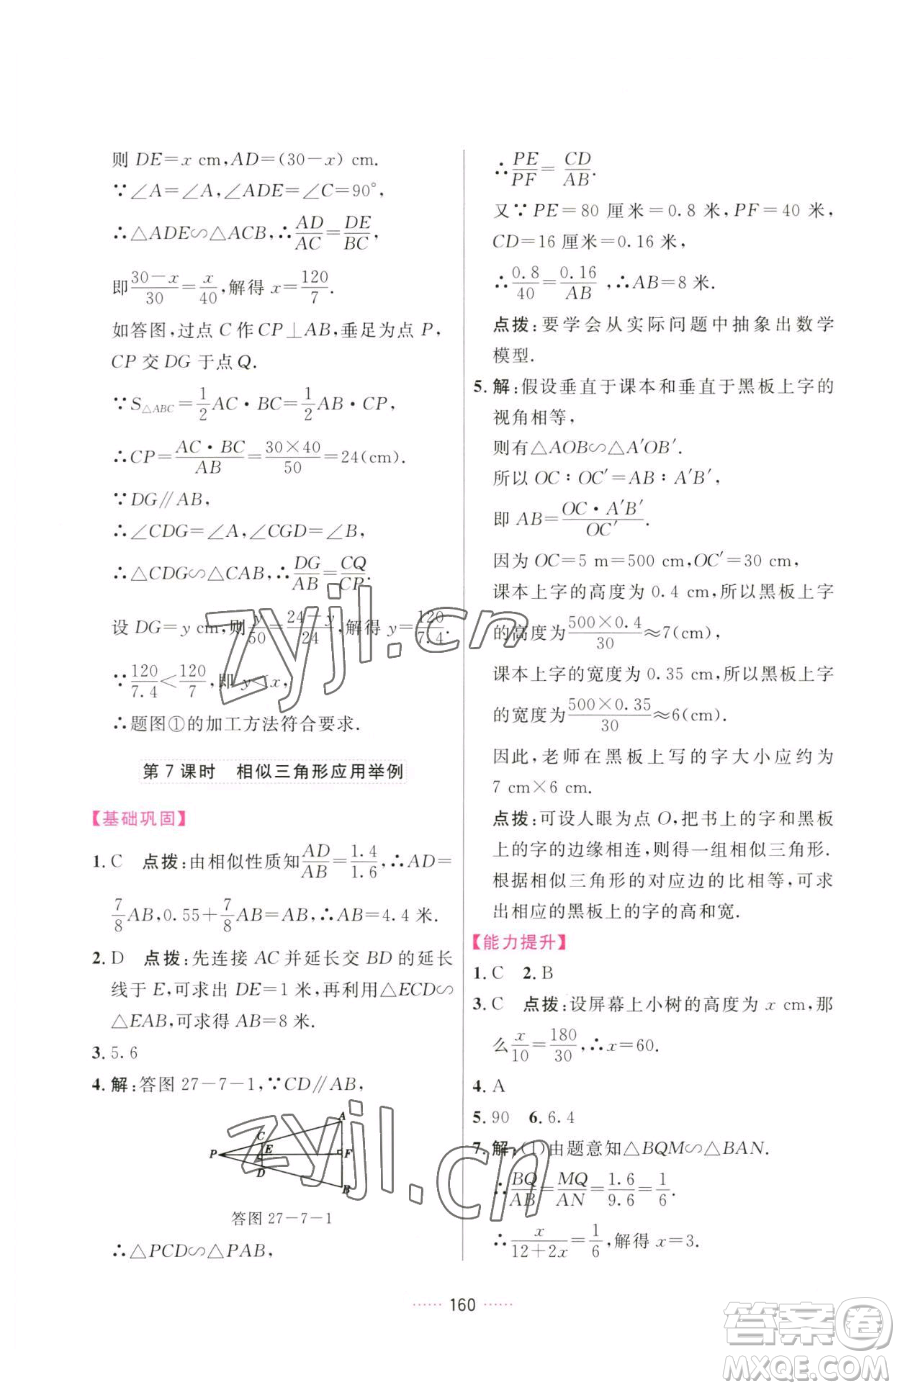 则 DE=x cm,AD=(30-x) cm.
∵∠A=∠A,∠ADE=∠C=90°,
∴△ADE∽△ACB,∴AD/AC=DE/BC.
即(30-x)/30=x/40,解得 x=120/7.
如答图,过点 C 作 CP⊥AB,垂足为点 P,
CP 交 DG 于点 Q.
∵S△ABC=1/2 AC·BC=1/2 AB·CP,
∴CP=(AC·BC)/AB=(30×40)/50=24(cm).
∵DG∥AB,
∴∠CDG=∠A,∠CGD=∠B,
∴△CDG∽△CAB,∴DG/AB=CQ/CP.
设 DG=y cm,则 y/50=(24-y)/24,解得 y=120/7.4.
∵120/7.4<120/7,即 y<x,
∴题图①的加工方法符合要求.
第 7 课时 相似三角形应用举例
【基础巩固】
1. C 点拨:由相似性质知AD/AB=1.4/1.6,∴AD=
7/8AB,0.55+7/8AB=AB,∴AB=4.4 米.
2. D 点拨:先连接 AC 并延长交 BD 的延长
线于 E,可求出 DE=1 米,再利用△ECD∽
△EAB,可求得 AB=8 米.
3. 5.6
4. 解:答图 27-7-1,∵CD∥AB,
A
C
E
P
F
D
B
答图 27-7-1
∴△PCD∽△PAB,
∴PE/PF=CD/AB.
又∵PE=80 厘米=0.8 米,PF=40 米,
CD=16 厘米=0.16 米,
∴0.8/40=0.16/AB,∴AB=8 米.
点拨:要学会从实际问题中抽象出数学
模型.
5. 解:假设垂直于课本和垂直于黑板上字的
视角相等,
则有△AOB∽△A′OB′.
所以 OC∶OC′=AB∶A′B′,
即 AB=(OC·A′B′)/OC′.
因为 OC=5 m=500 cm,OC′=30 cm,
课本上字的高度为 0.4 cm,所以黑板上字
的高度为(500×0.4)/30≈7(cm),
课本上字的宽度为 0.35 cm,所以黑板上字
的宽度为(500×0.35)/30≈6(cm).
因此,老师在黑板上写的字大小应约为
7 cm×6 cm.
点拨:可设人眼为点 O,把书上的字和黑板
上的字的边缘相连,则得一组相似三角形.
根据相似三角形的对应边的比相等,可求
出相应的黑板上的字的高和宽.
【能力提升】
1. C 2. B
3. C 点拨:设屏幕上小树的高度为 x cm,那
么x/10=180/30,∴x=60.
4. A
5. 90 6. 6.4
7. 解:(1)由题意知△BQM∽△BAN.
∴BQ/AB=MQ/AN=1.6/9.6=1/6.
∴x/(12+2x)=1/6,解得 x=3.
······ 160 ······
zyjl.cn
zyjl.cn
答案圈
MXQE.COM